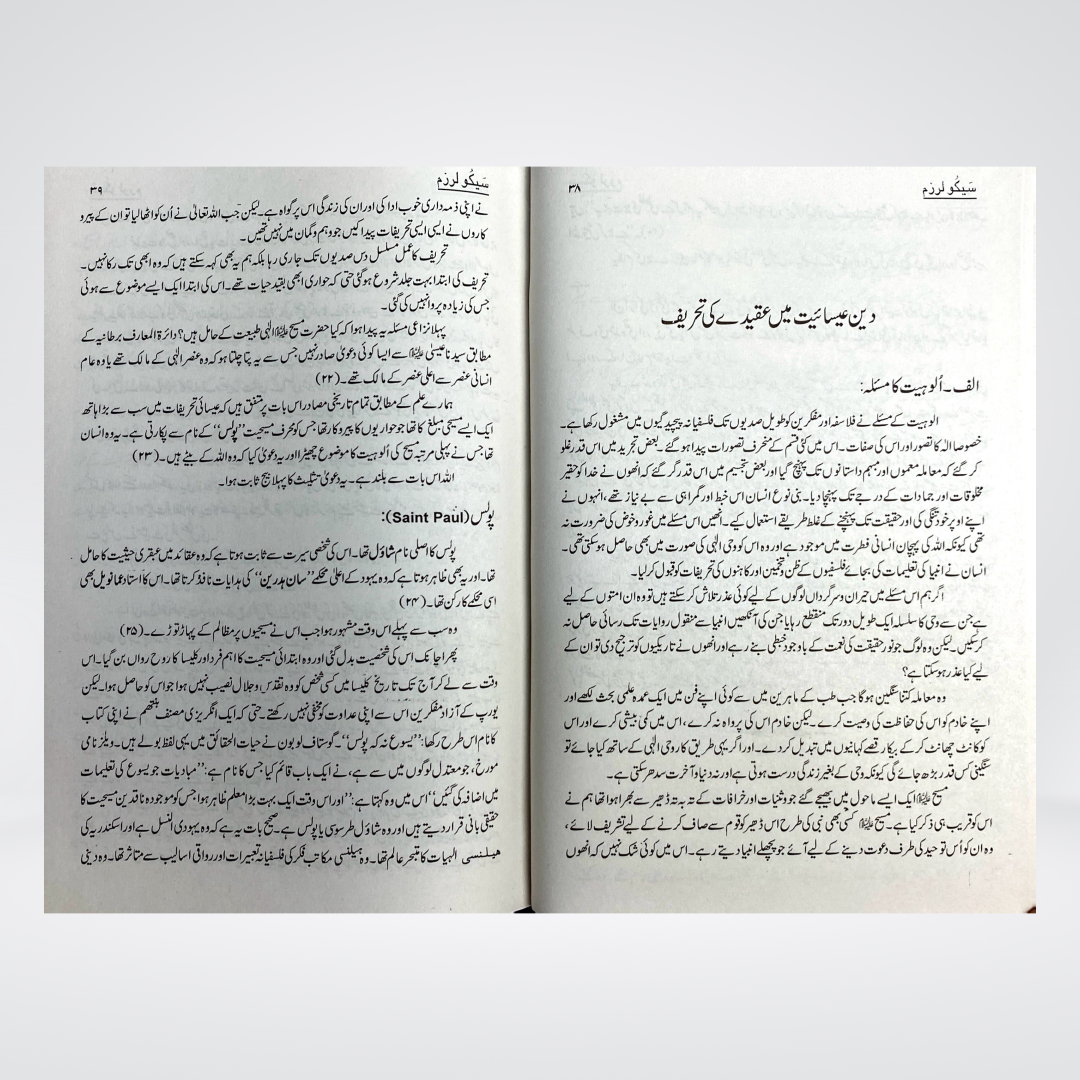 سیکولرزم
۳۸
دین عیسائیت میں عقیدے کی تحریف
الف۔ اُلوہیت کا مسئلہ:
الوہیت کے مسئلے نے فلاسفہ اور مفکرین کو طویل صدیوں تک فلسفیانہ پیچیدگیوں میں مشغول رکھا ہے۔
خصوصاً الٰہ کا تصور اور اس کی صفات۔ اس میں کئی قسم کے منحرف تصورات پیدا ہو گئے۔ بعض تجرید میں اس قدر غلو
کر گئے کہ معاملہ معموں اور مبہم داستانوں تک پہنچ گیا اور بعض تجسیم میں اس قدر گر گئے کہ انھوں نے خدا کو حقیر
مخلوقات اور جمادات کے درجے تک پہنچا دیا۔ بنی نوع انسان اس خبط اور گمراہی سے بے نیاز تھے، انہوں نے
اپنے اوپر خود تنگی کی اور حقیقت تک پہنچنے کے غلط طریقے استعمال کیے۔ انھیں اس مسئلے میں غور و خوض کی ضرورت نہ
تھی کیونکہ اللہ کی پہچان انسانی فطرت میں موجود ہے اور وہ اس کو وحی الٰہی کی صورت میں بھی حاصل ہو سکتی تھی۔
انسان نے انبیا کی تعلیمات کی بجائے فلسفیوں کے ظن و تخمین اور کاہنوں کی تحریفات کو قبول کر لیا۔
اگر ہم اس مسئلے میں حیران و سرگرداں لوگوں کے لیے کوئی عذر تلاش کر سکتے ہیں تو وہ ان امتوں کے لیے
ہے جن سے وحی کا سلسلہ ایک طویل دور تک منقطع رہا یا جن کی آنکھیں انبیا سے منقول روایات تک رسائی حاصل نہ
کر سکیں۔ لیکن وہ لوگ جو نور حقیقت کی نعمت کے باوجود خبطی بنے رہے اور انھوں نے تاریکیوں کو ترجیح دی تو ان کے
لیے کیا عذر ہو سکتا ہے؟
وہ معاملہ کتنا سنگین ہو گا جب طب کے ماہرین میں سے کوئی اپنے فن میں ایک عمدہ علمی بحث لکھے اور
اپنے خادم کو اس کی حفاظت کی وصیت کرے۔ لیکن خادم اس کی پرواہ نہ کرے، اس میں کمی بیشی کرے اور اس
کو کانٹ چھانٹ کر کے بیکار قصے کہانیوں میں تبدیل کر دے۔ اور اگر یہی طریق کار وحی الٰہی کے ساتھ کیا جائے تو
سنگینی کس قدر بڑھ جائے گی کیونکہ وحی کے بغیر زندگی درست ہوتی ہے اور نہ دنیا و آخرت سدھر سکتی ہے۔
مسیح علیہ السلام ایک ایسے ماحول میں بھیجے گئے جو وثنیات اور خرافات کے تہ بہ تہ ڈھیر سے بھرا ہوا تھا ہم نے
اس کو قریب ہی ذکر کیا ہے۔ مسیح علیہ السلام کسی بھی نبی کی طرح اس ڈھیر کو قوم سے صاف کرنے کے لیے تشریف لائے،
وہ ان کو اُس توحید کی طرف دعوت دینے کے لیے آئے جو پچھلے انبیا دیتے رہے۔ اس میں کوئی شک نہیں کہ انھوں
سیکولرزم
۳۹
نے اپنی ذمہ داری خوب ادا کی اور ان کی زندگی اس پر گواہ ہے۔ لیکن جب اللہ تعالیٰ نے اُن کو اٹھا لیا تو ان کے پیرو
کاروں نے ایسی ایسی تحریفات پیدا کیں جو وہم و گمان میں نہیں تھیں۔
تحریف کا عمل مسلسل دس صدیوں تک جاری رہا بلکہ ہم یہ بھی کہہ سکتے ہیں کہ وہ ابھی تک رکا نہیں۔
تحریف کی ابتدا بہت جلد شروع ہو گئی حتی کہ حواری ابھی بقید حیات تھے۔ اس کی ابتدا ایک ایسے موضوع سے ہوئی
جس کی زیادہ پروا نہیں کی گئی۔
پہلا نزاعی مسئلہ یہ پیدا ہوا کہ کیا حضرت مسیح علیہ السلام الٰہی طبیعت کے حامل ہیں؟ دائرۃ المعارف برطانیہ کے
مطابق سیدنا عیسیٰ علیہ السلام سے ایسا کوئی دعویٰ صادر نہیں جس سے یہ پتا چلتا ہو کہ وہ عنصر الٰہی کے مالک تھے یا وہ عام
انسانی عنصر سے اعلیٰ عنصر کے مالک تھے۔ (۲۲)
ہمارے علم کے مطابق تمام تاریخی مصادر اس بات پر متفق ہیں کہ عیسائی تحریفات میں سب سے بڑا ہاتھ
ایک ایسے مسیحی مبلغ کا تھا جو حواریوں کا پیروکار تھا جس کو محرف مسیحیت ”پولس“ کے نام سے پکارتی ہے۔ یہ وہ انسان
تھا جس نے پہلی مرتبہ مسیح کی اُلوہیت کا موضوع چھیڑا اور یہ دعویٰ کیا کہ وہ اللہ کے بیٹے ہیں۔ (۲۳)
اللہ اس بات سے بلند ہے۔ یہ دعویٰ تثلیث کا پہلا بیج ثابت ہوا۔
پولس (Saint Paul):
پولس کا اصلی نام شاؤل تھا۔ اس کی شخصی سیرت سے ثابت ہوتا ہے کہ وہ عقائد میں عبقری حیثیت کا حامل
تھا۔ اور یہ بھی ظاہر ہوتا ہے کہ وہ یہود کے اعلیٰ محکمے ”سان ہدرین“ کی ہدایات نافذ کرتا تھا۔ اس کا استاد عمانویل بھی
اسی محکمے کا رکن تھا۔ (۲۴)
وہ سب سے پہلے اس وقت مشہور ہوا جب اس نے مسیحیوں پر مظالم کے پہاڑ توڑے۔ (۲۵)
پھر اچانک اس کی شخصیت بدل گئی اور وہ ابتدائی مسیحیت کا اہم فرد اور کلیسا کا روح رواں بن گیا۔ اس
وقت سے لے کر آج تک تاریخ کلیسا میں کسی شخص کو وہ تقدس و جلال نصیب نہیں ہوا جو اس کو حاصل ہوا۔ لیکن
یورپ کے آزاد مفکرین اس سے اپنی عداوت کو مخفی نہیں رکھتے۔ حتی کہ ایک انگریزی مصنف بنتھم نے اپنی کتاب
کا نام اس طرح رکھا: ”یسوع نہ کہ پولس“۔ گوستاف لوبون نے حیات الحقائق میں یہی لفظ بولے ہیں۔ ویلز نامی
مورخ، جو معتدل لوگوں میں سے ہے، نے ایک باب قائم کیا جس کا نام ہے: ”مبادیات جو یسوع کی تعلیمات
میں اضافہ کی گئیں“ اس میں وہ کہتا ہے: ”اور اس وقت ایک بہت بڑا معلم ظاہر ہوا جس کو موجودہ ناقدین مسیحیت کا
حقیقی بانی قرار دیتے ہیں اور وہ شاؤل طرسوسی یا پولس ہے۔ صحیح بات یہ ہے کہ وہ یہودی النسل ہے اور اسکندریہ کی
ھیلنسی الٰہیات کا متبحر عالم تھا۔ وہ ہیلنسی مکاتب فکر کی فلسفیانہ تعبیرات اور رواقی اسالیب سے متاثر تھا۔ وہ دینی